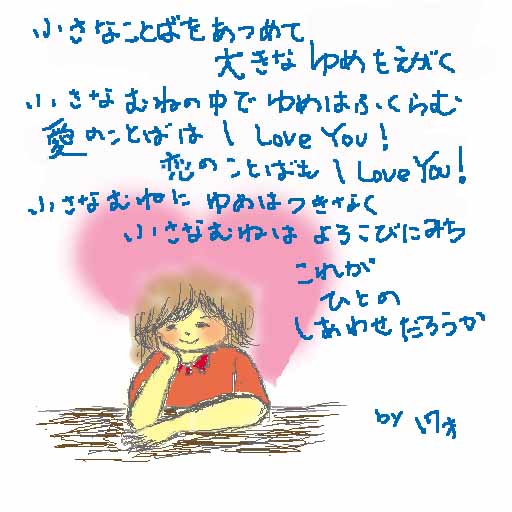 小さなことばをあつめて
大きな ゆめをえがく
小さな むねの中で ゆめはふくらむ
愛のことばは I Love You!
恋のことばも I Love You!
小さなむねに ゆめはつきなく
小さなむねは よろこびにみち
これが
ひとの
しあわせだろうか
by